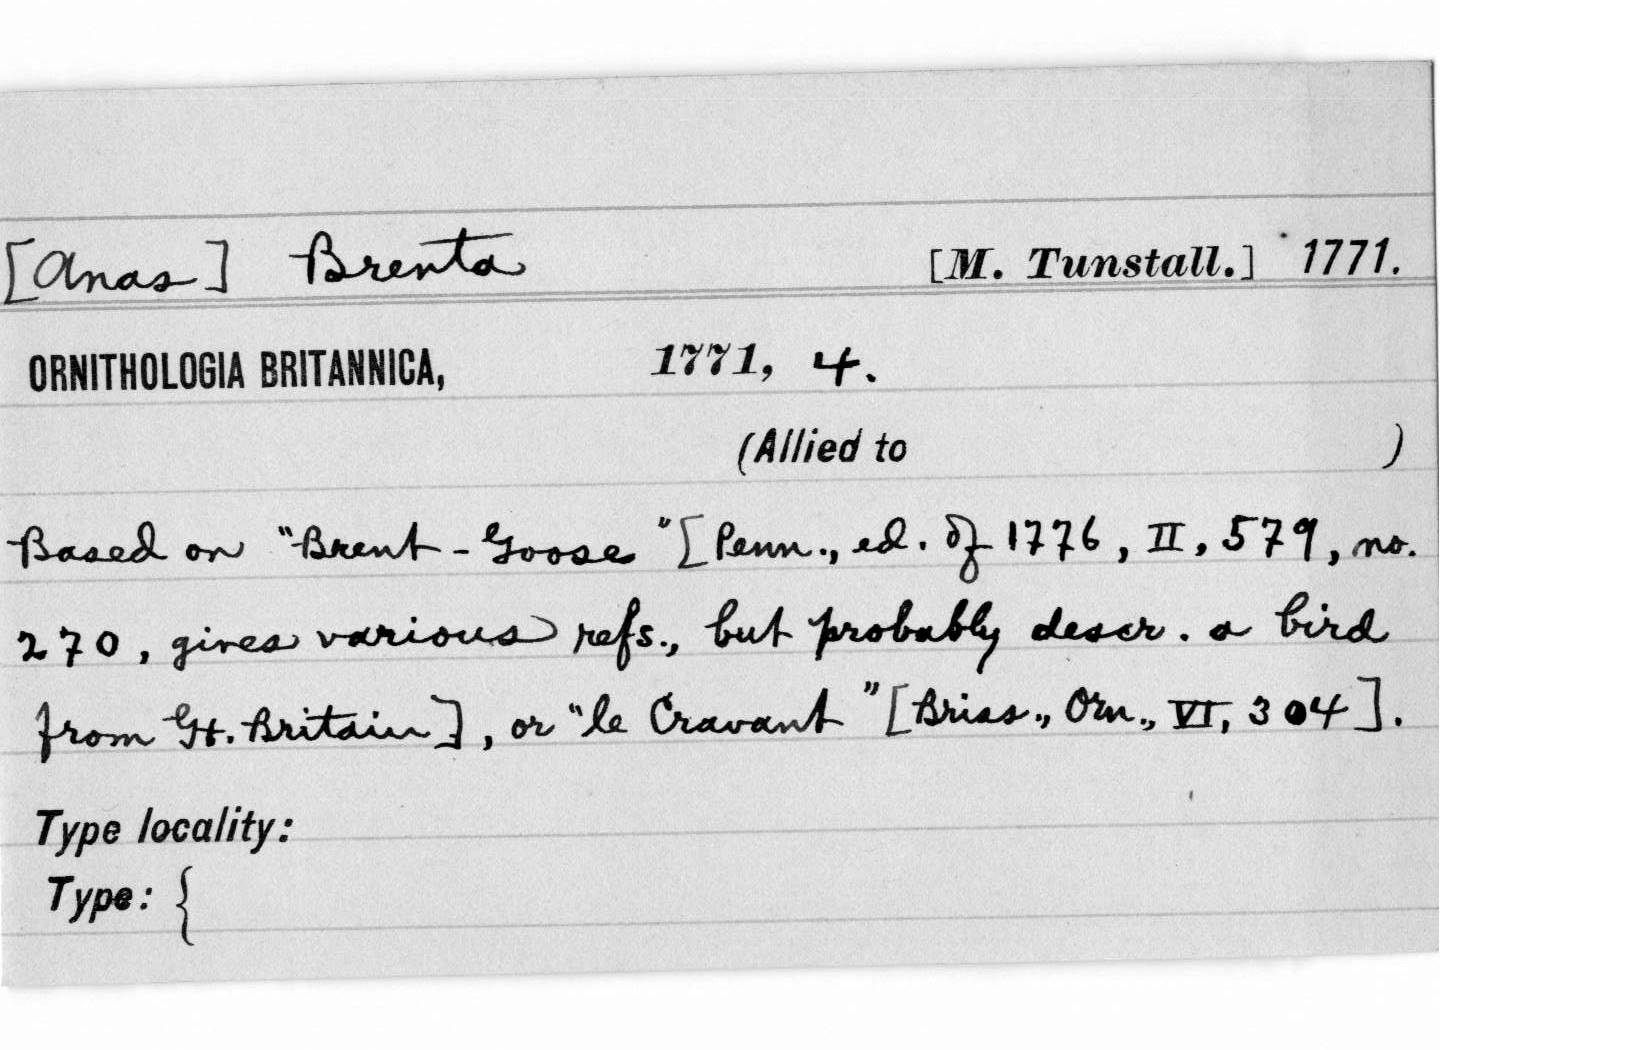 [Anas] Brenta [M. Tunstall.] 1771.
ORNITHOLOGIA BRITANNICA, 1771, 4.
(Allied to )
Based on "Brent-Goose" [Penn., ed. of 1776, II, 579, no.
270, gives various refs., but probably descr. a bird
from Gt. Britain], or "le Cravant" [Briss., Orn., VI, 304].
Type locality:
Type: {